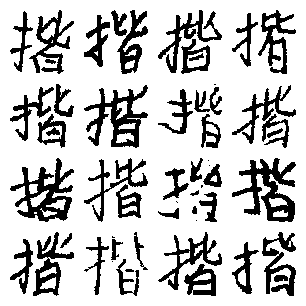 揩揩揩揩
揩揩揩揩
揩揩揩揩
揩揩揩揩